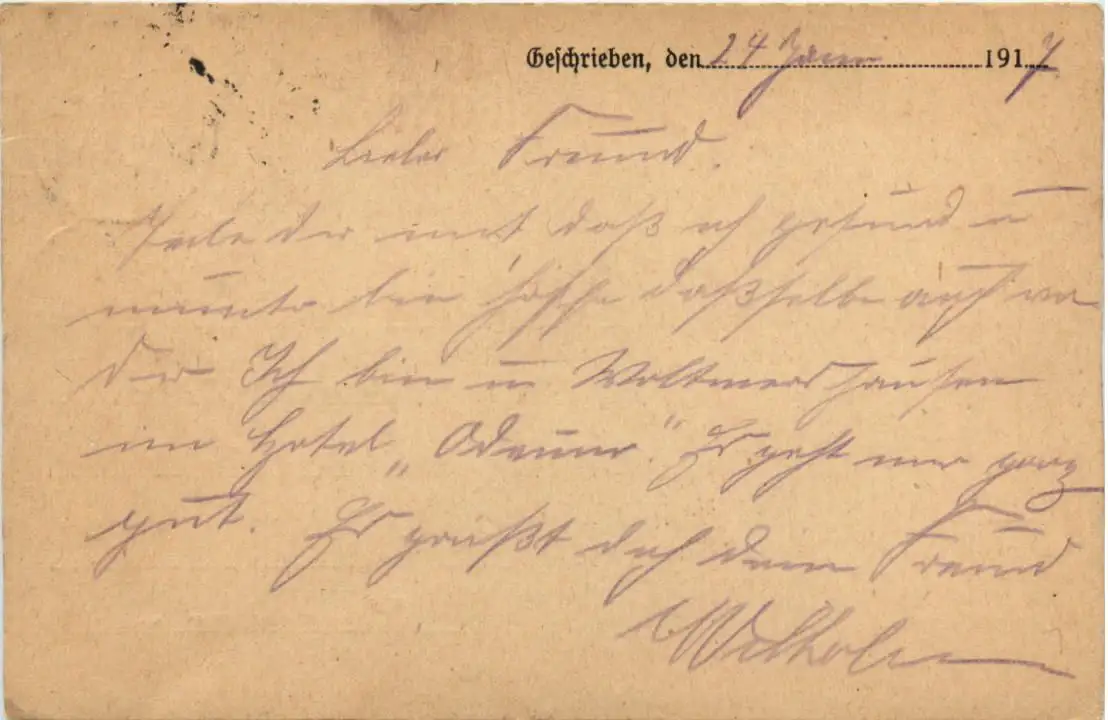 Geschrieben, den 24 Janur 1917
Lieber Freund.
Teile dir mit daß ich gesund u
munter bin hoffe daßselbe auch von
dir Ich bin in Woltmershausen
im Hotel „Odeum". Es geht mir ganz
gut. Es grüßt dich dein Freund
Wilhelm